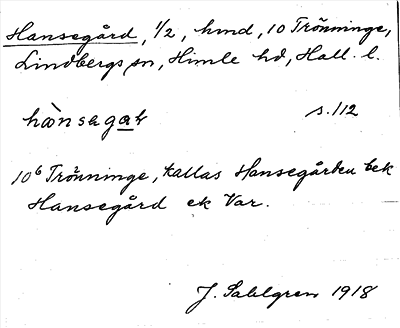 Hansegård, 1/2, hmd, 10 Trönninge,
Lindbergs sn, Himle hd, Hall. l.
hànsegaḷ s. 112
10⁶ Trönninge, kallas Hansegården bek
Hansegård ek Var.
J. Sahlgren 1918